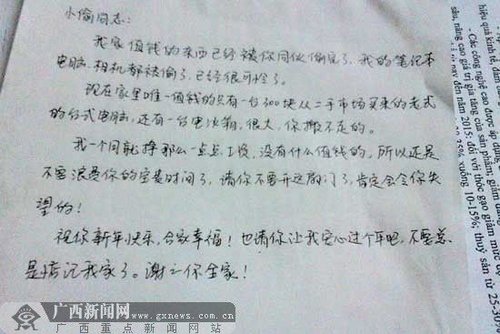 小偷同志：
我家值钱的东西已经被你同伙偷完了，我的笔记本
电脑、相机都被偷了，已经很可怜了。
现在家里唯一值钱的只有一台300块从二手市场买来的老式
的台式电脑，还有一台电冰箱，很大，你搬不走的。
我一个月就挣那么一点点工资，没有什么值钱的，所以还是
不要浪费你的宝贵时间了，请你不要开这扇门了，肯定会令你失
望的！
祝你新年快乐，合家幸福！也请你让我安心过个年吧，不要总
是惦记我家了。谢谢你全家！
广西新闻网
www.gxnews.com.cn
广西重点新闻网站
hiệu quả kinh tế, đảm
- Các công nghệ cao được áp dụng
sâu, nâng cao giá trị gia tăng của sản phẩm
đến năm 2015: đối với
thóc gạo giảm mức
xuống 10-15%; thuỷ sản từ